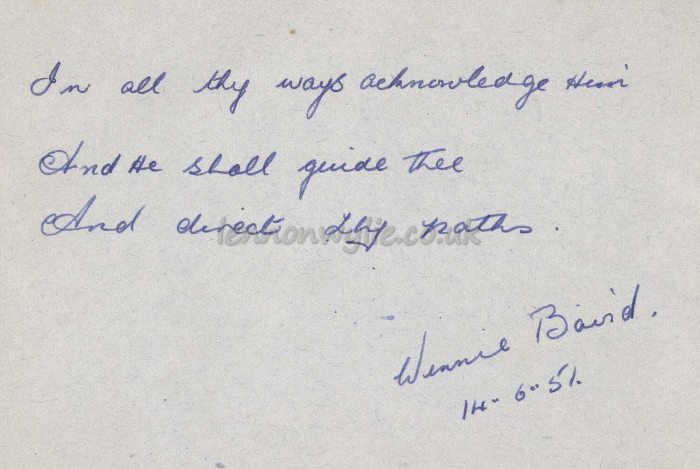 In all thy ways acknowledge Him
And He shall guide Thee
And direct thy paths.
lennonwylie.co.uk
Winnie Baird.
14-6-51.